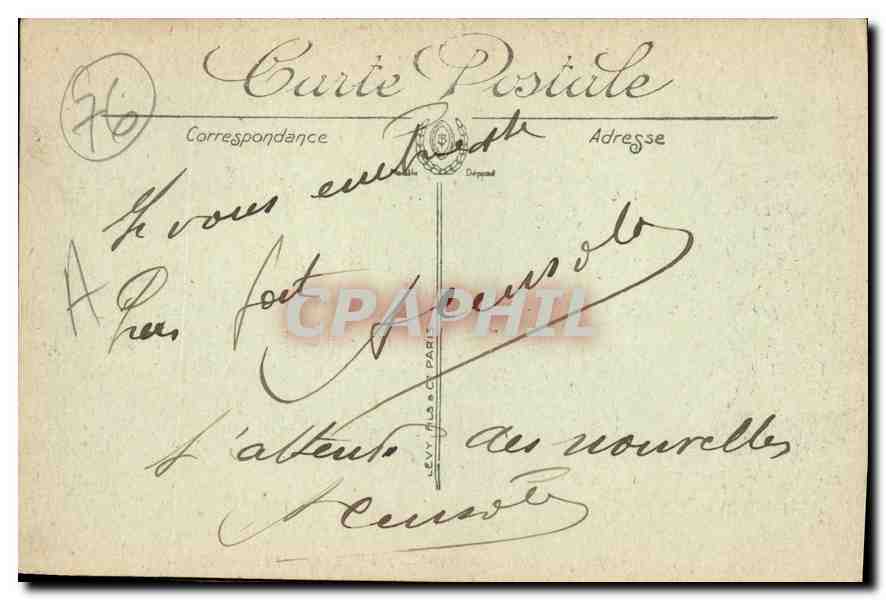 Carte Postale
76
Correspondance
Adresse
Déposé
Je vous embrasse
A
fort
CPAPHIL
LEVY FILS & Cie PARIS
J'attends des nouvelles